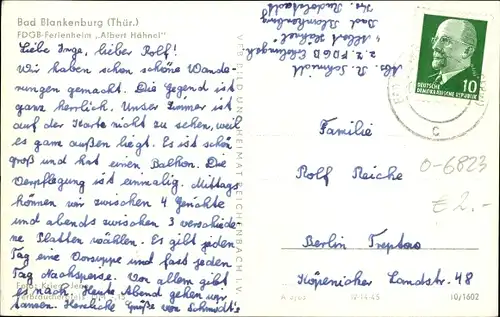 Bad Blankenburg (Thür.)
FDGB-Ferienheim „Albert Hähnel"
Liebe Inge, lieber Rolf!
Wir haben schon schöne Wande-
rungen gemacht. Die Gegend ist
ganz herrlich. Unser Zimmer ist
auf der Karte nicht zu sehen, weil
es ganz außen liegt. Es ist schön
groß und hat einen Balkon. Die
Verpflegung ist einmalig. Mittags
können wir zwischen 4 Gerichte
und abends zwischen 3 verschiede-
ne Platten wählen. Es gibt jeden
Tag eine Vorsuppe und fast jeden
Tag Nachspeise. Vor allem gibt
es nach. Heute Abend gehen wir
tanzen. Herzliche Grüße von Schmidt's
Abs. R. Schmidt
z. Z. FDGB Erholungsh.
"Albert Hähnel"
Bad Blankenburg
Kr. Rudolstadt
VEB BILD UND HEIMAT REICHENBACH I. V.
DEUTSCHE
DEMOKRATISCHE REPUBLIK
10
c
Familie
Rolf Reiche
0-6823
€ 2.-
Berlin Treptow
Köpenicker Landstr. 48
10/1602